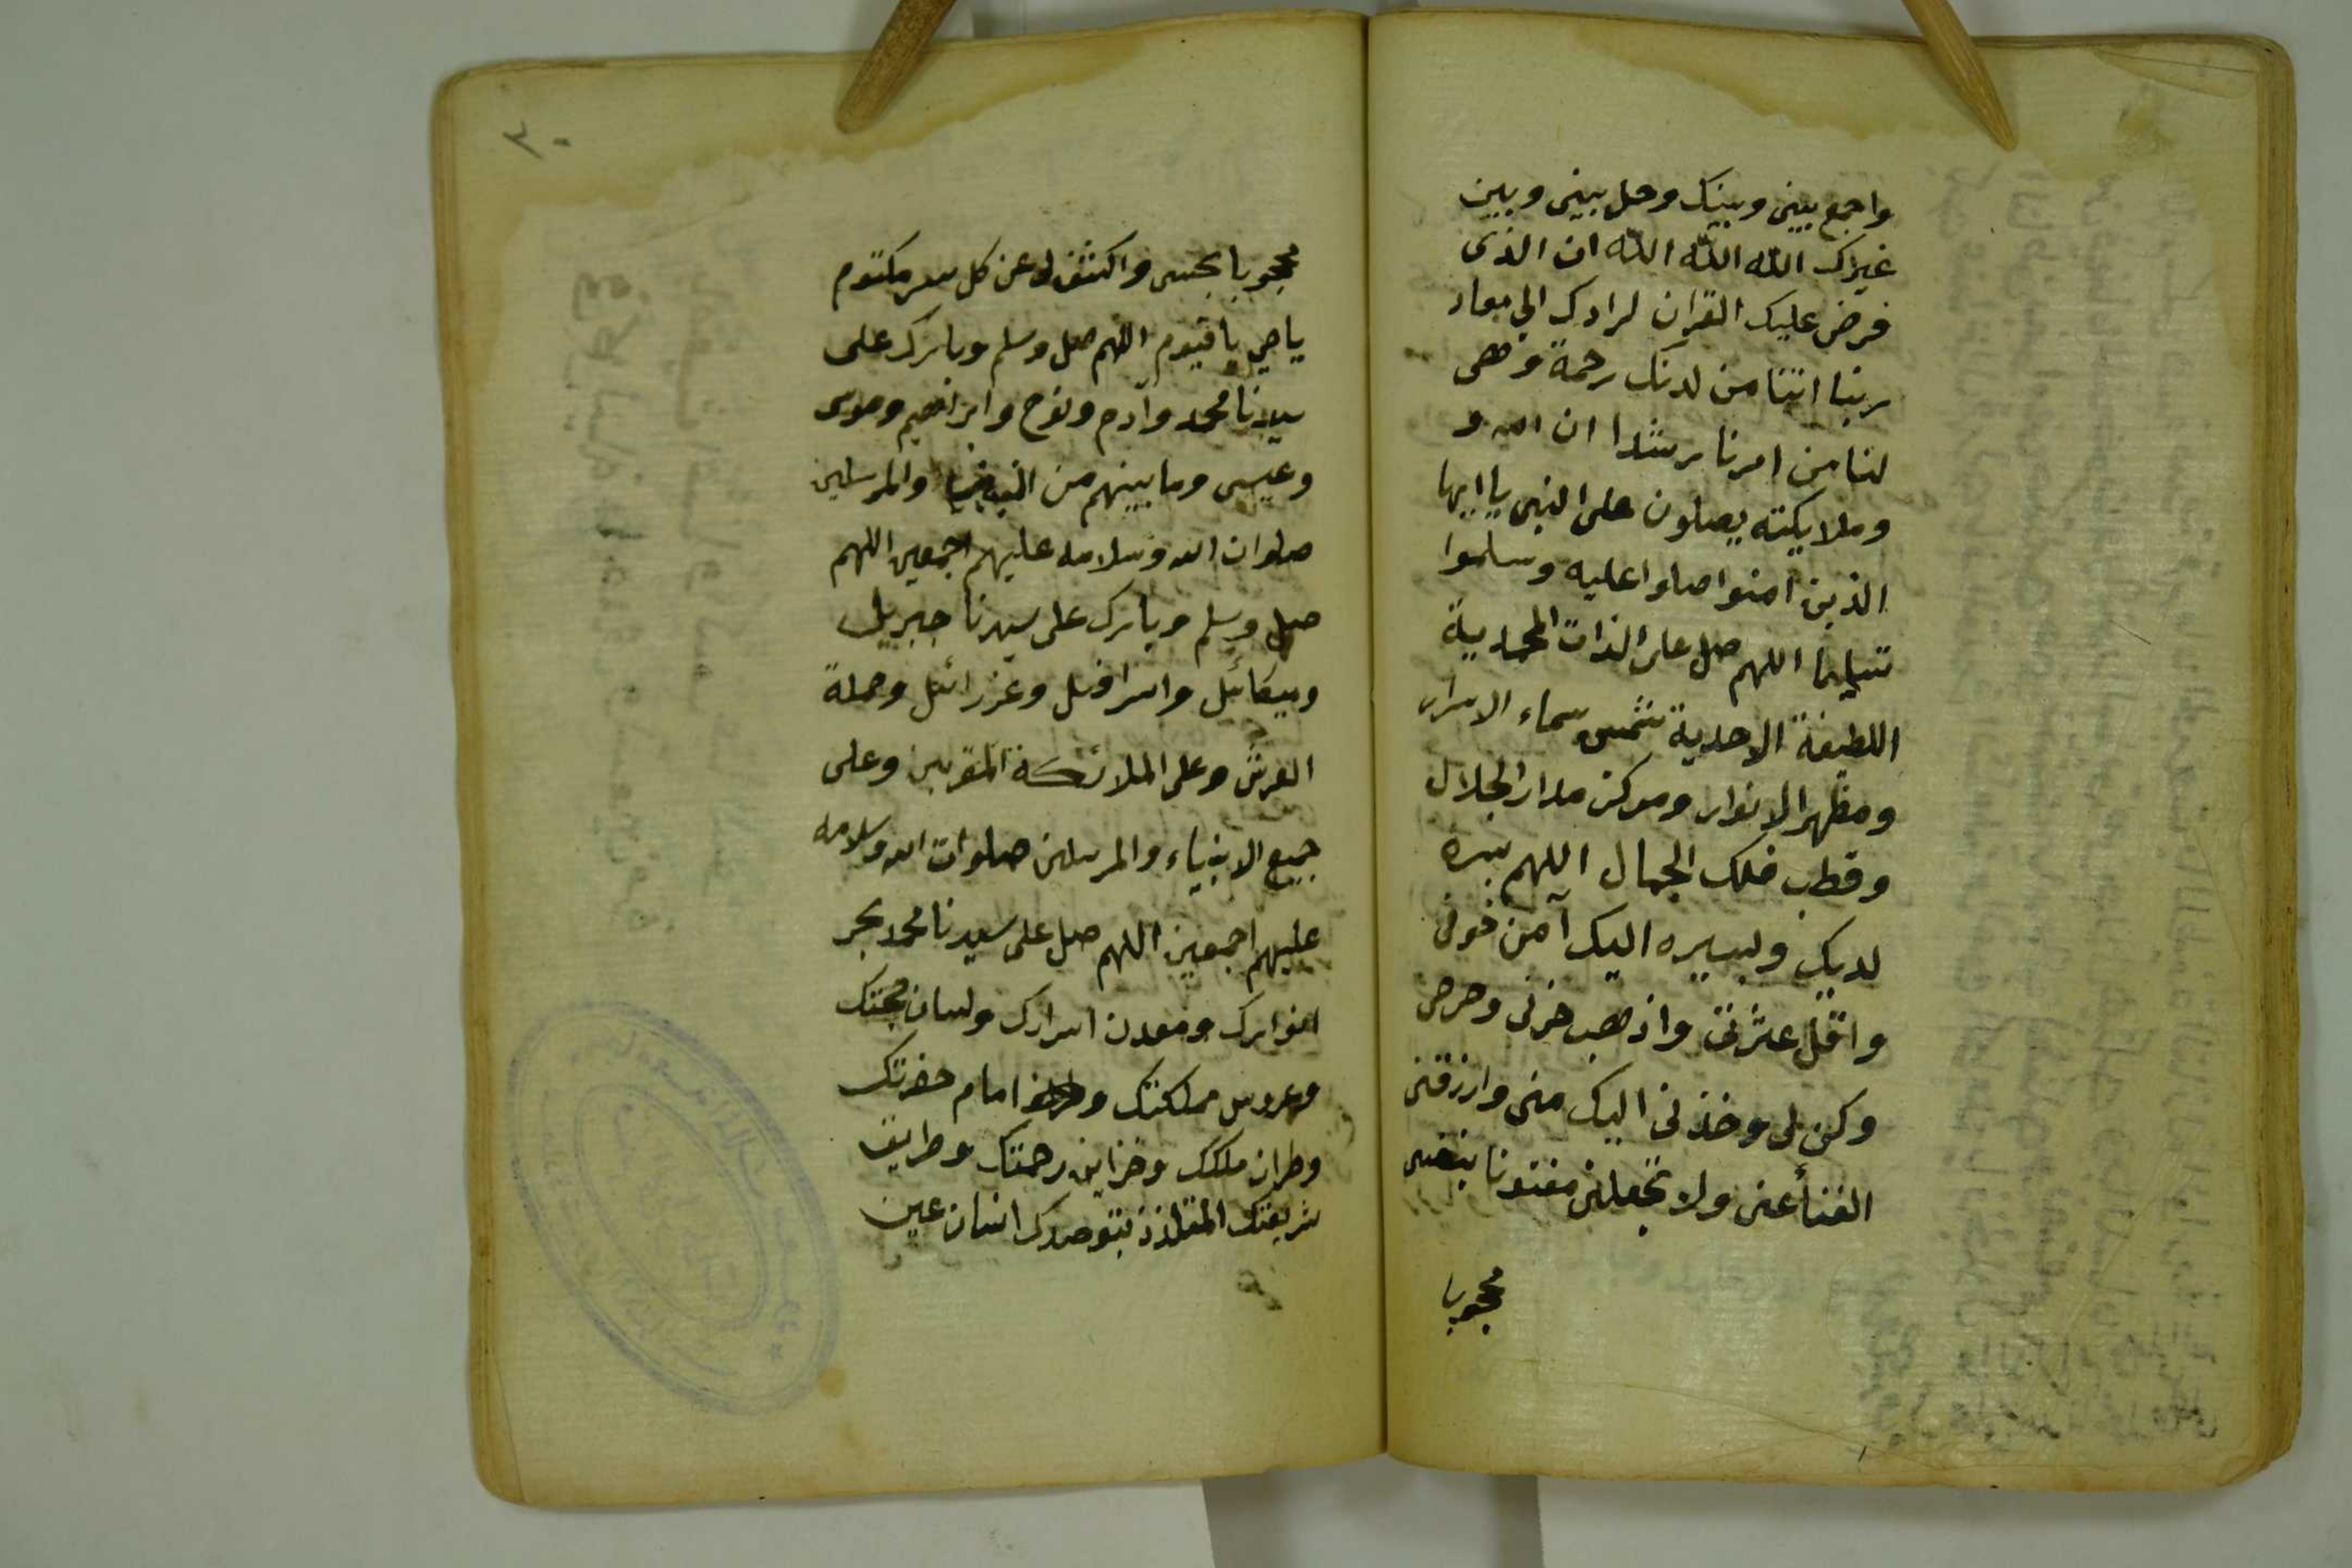 واجمع بيني وبينك وحل بيني وبين
غيرك الله الله الله ان الذى
فرض عليك القران لرادك الي معاد
ربنا اتنا من لدنك رحمة وهى
لنا من امرنا رشدا ان الله و
وملايكته يصلون على النبى يا ايها
الذين آمنوا صلوا عليه وسلموا
تسليما اللهم صل على الذات المحمدية
اللطيفة الاحدية شمس سماء الاسرار
ومظهر الانوار ومركز مدار الجلال
وقطب فلك الجمال اللهم بسره
لديك وبسيره اليك آمن خوفى
واقل عثرتى واذهب حزنى وحرصى
وكن لى وخذنى اليك منى وارزقنى
الفنأ عنى ولا تجعلنى مفتونا بنفسى
محجوبا
٢٠
محجوبا بحسى واكشف لى عن كل سر مكتوم
يا حي يا قيوم اللهم صل وسلم وبارك على
سيدنا محمد وآدم ونوح وابراهيم وموسى
وعيسى وما بينهم من النبيين والمرسلين
صلوات الله وسلامه عليهم اجمعين اللهم
صل وسلم وبارك على سيدنا جبريل
وميكائل واسرافيل وعزرائل وحملة
العرش وعلى الملائكة المقربين وعلى
جميع الانبياء والمرسلين صلوات الله وسلامه
عليهم اجمعين اللهم صل على سيدنا محمد بحر
انوارك ومعدن اسرارك ولسان حجتك
وعروس مملكتك امام حضرتك
وطراز ملكك وخزاين رحمتك وطريق
شريعتك المتلذذ بتوحيدك انسان عين